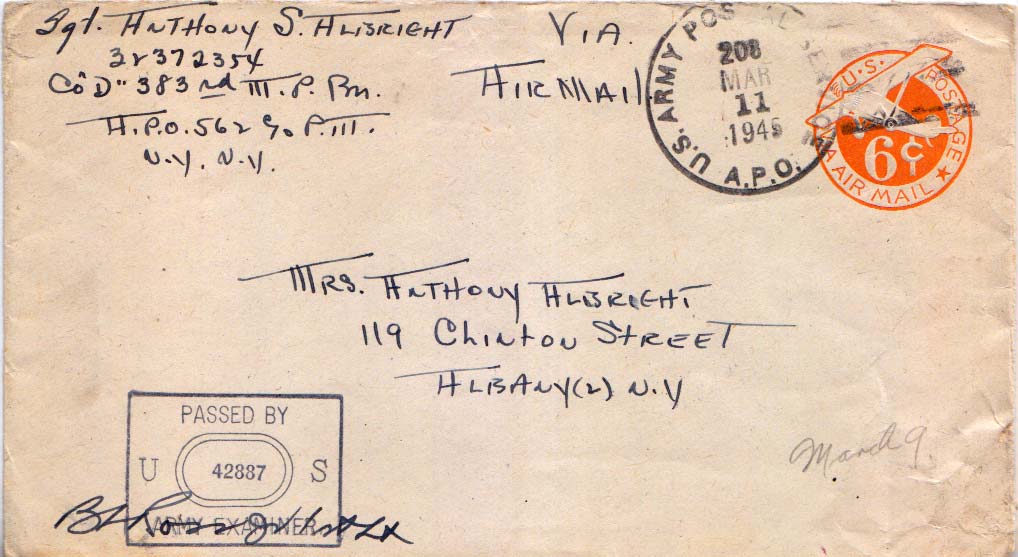 Sgt. ANTHONY S. ALBRIGHT
32372354
Co "D" 383rd M.P. Bn.
A.P.O. 562 c/o P.M.
N.Y. N.Y.
VIA.
AIR MAIL
U.S. ARMY POSTAL
208
MAR
11
1945
A.P.O.
U.S. POSTAGE
6¢
VIA AIR MAIL
MRS. ANTHONY ALBRIGHT
119 CLINTON STREET
ALBANY (2) N.Y
March 9.
PASSED BY
U 42887 S
ARMY EXAMINER